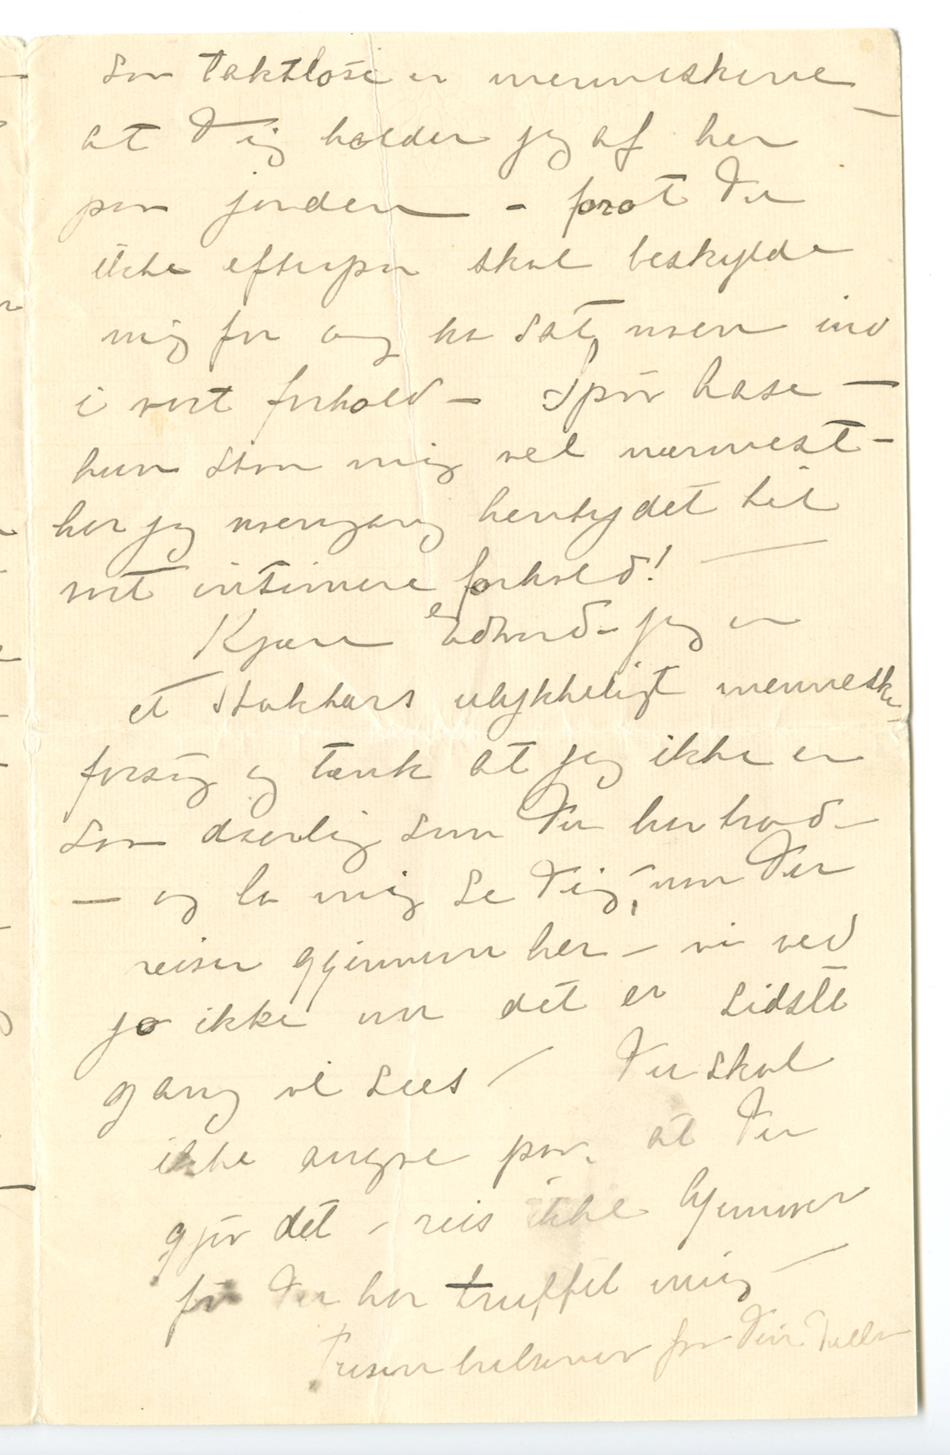 saa taktløse er menneskene –
at Dig holder jeg af her
paa jorden – forat Du
ikke efterpaa skal beskylde
mig for og ha sat noen ind
i vort forhold – Spør Aase –
hun staar mig vel nærmest –
har jeg noengang hentydet til
vort intimere forhold! –
Kjære Edvard – jeg er
et stakkars ulykkeligt menneske
forsøg og tænk at jeg ikke er
saa daarlig som Du har trod –
– og la mig se Dig, naar Du
reiser gjennem her – vi ved
jo ikke om det er sidste
gang vi sees / Du skal
ikke angre paa, at Du
gjør det – reis ikke hjemover
før Du har truffet mig –
Tusen hilsener fra Din Tulla